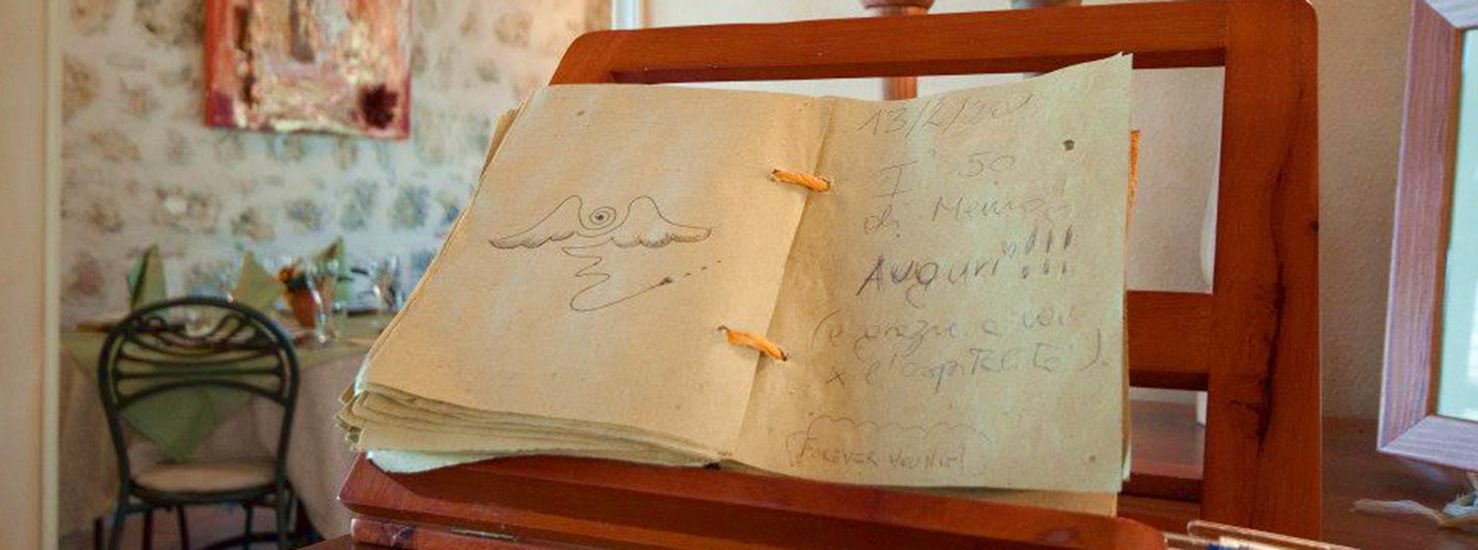 13/2/20
I 50
di
Auguri!!!
(e grazie a voi
x l'ospitalità).
FOREVER YOUNG!